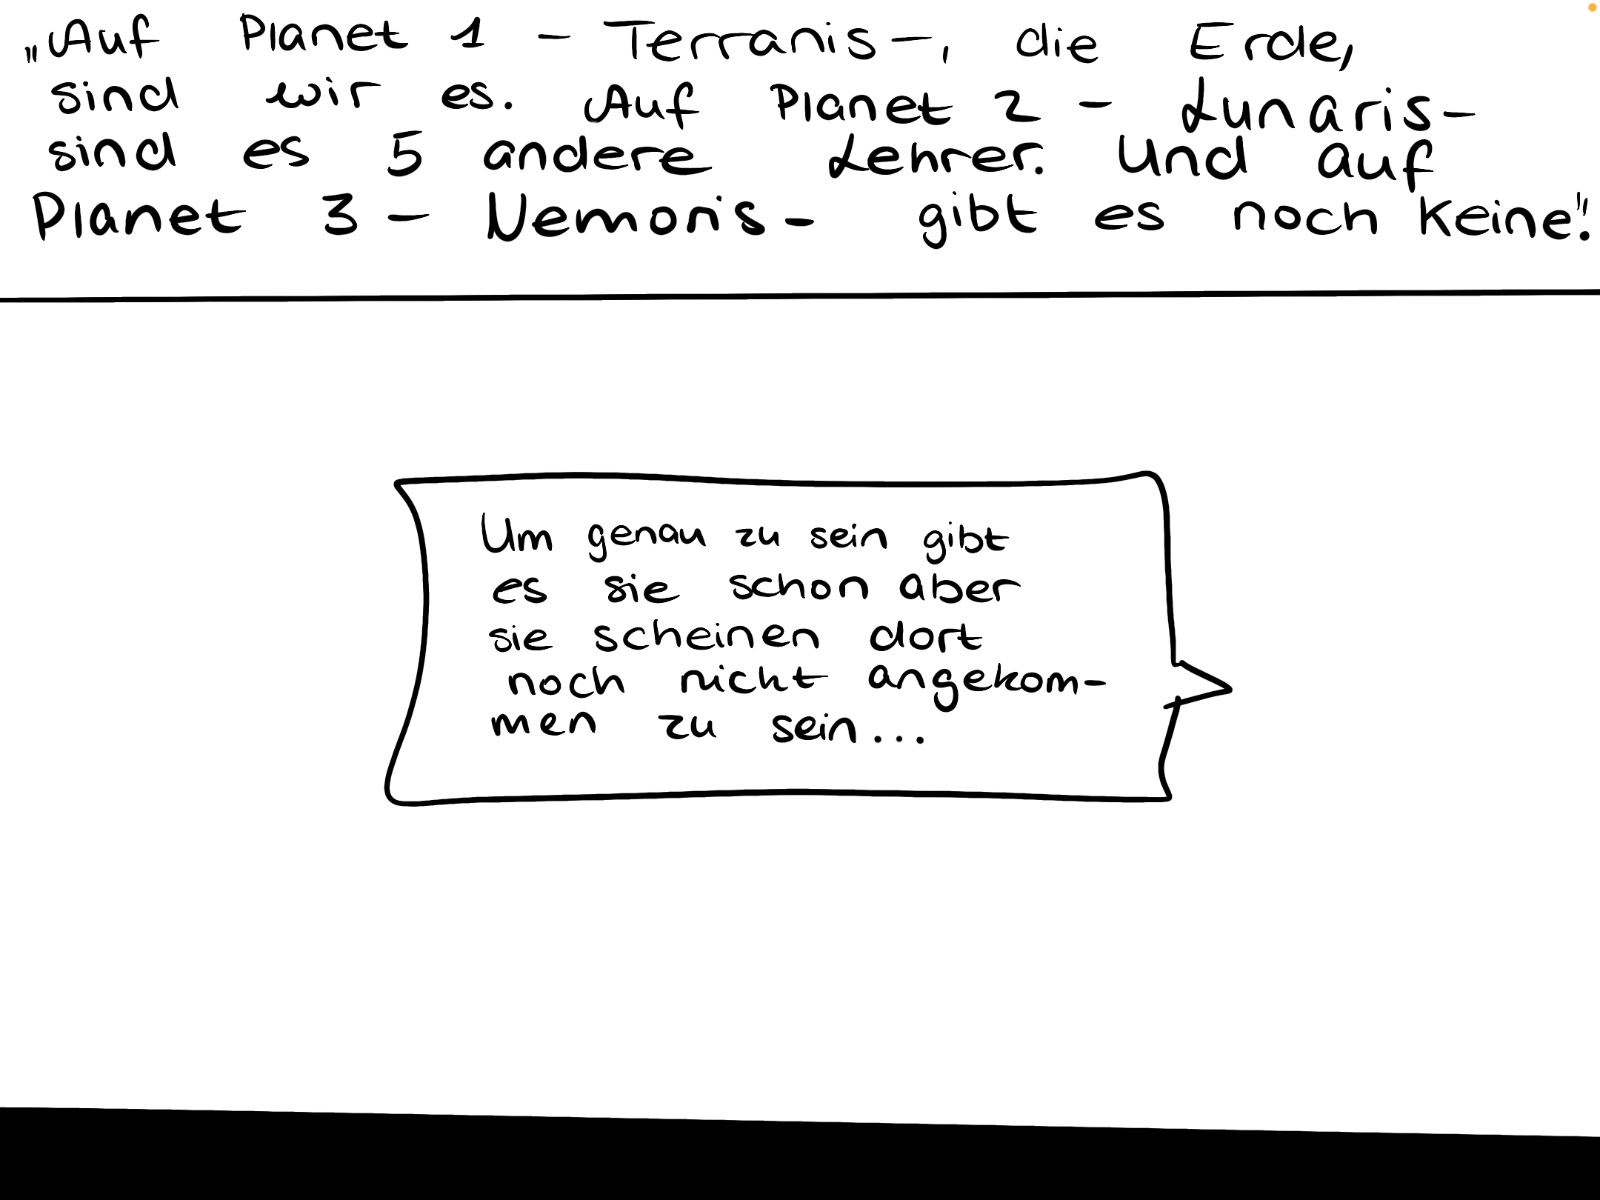 „Auf Planet 1 - Terranis-, die Erde,
sind wir es. Auf Planet 2 - Lunaris-
sind es 5 andere Lehrer. Und auf
Planet 3 - Nemoris- gibt es noch keine".
Um genau zu sein gibt
es sie schon aber
sie scheinen dort
noch nicht angekom-
men zu sein...